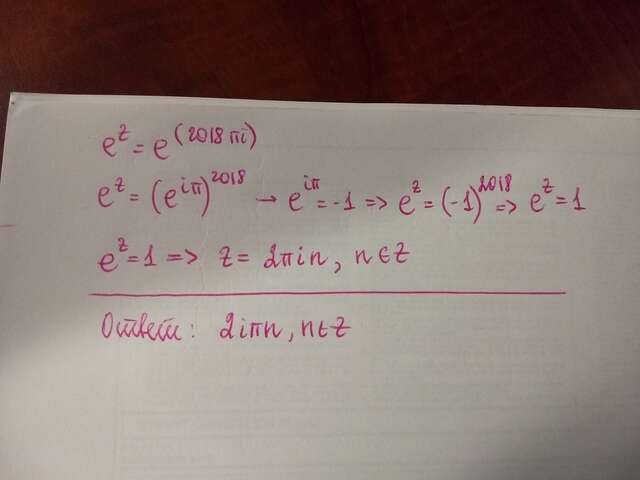 e^z = e^(2018πi)
e^z = (e^iπ)^2018 → e^iπ = -1 => e^z = (-1)^2018 => e^z = 1
e^z = 1 => z = 2πin, n∈Z
Ответ: 2iπn, n∈Z